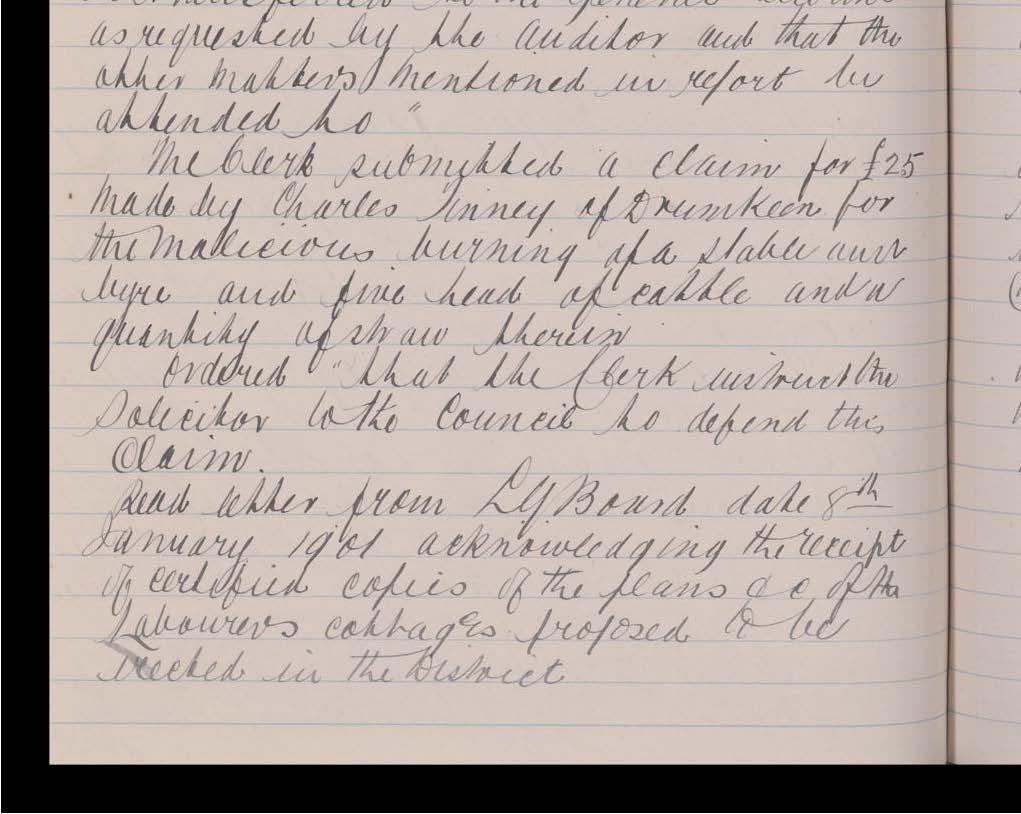 to the General
as requested by the Auditor and that the
other matters mentioned in report be
attended to "
The Clerk submitted a claim for £25
made by Charles Tinney of Drumkeen for
the malicious burning of a stable and
byre and five head of cattle and a
quantity of straw therein
Ordered "that the Clerk instruct the
Solicitor to the Council to defend this
Claim.
Read letter from LG Board date 8th
January 1901 acknowledging the receipt
of certified copies of the plans &c of the
Labourers cottages proposed to be
erected in the District